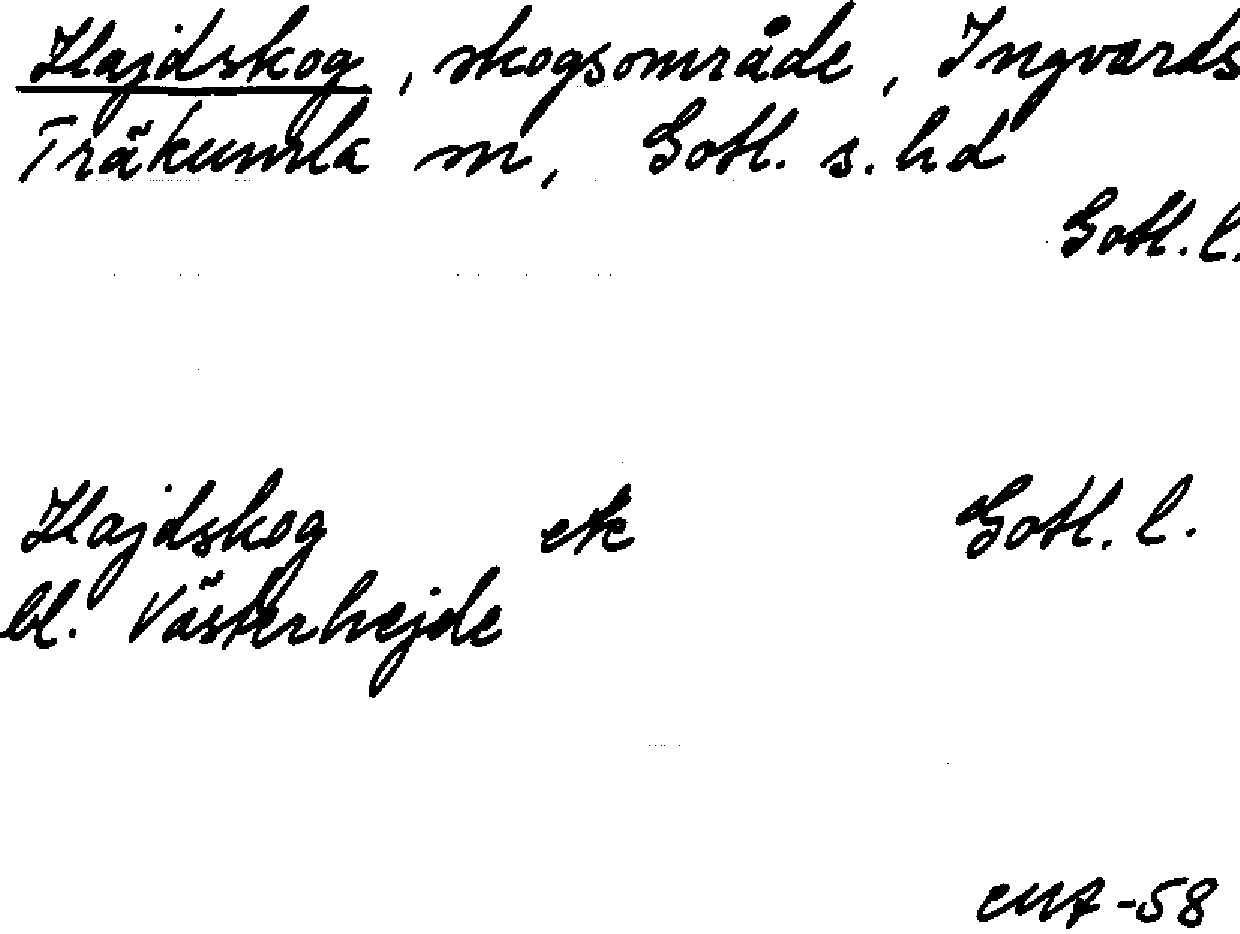 Hajdskog, skogsområde, Ingvards
Träkumla m, Gotl. s. hd
Gotl. l.
Hajdskog ek Gotl. l.
bl. Västerhejde
-58